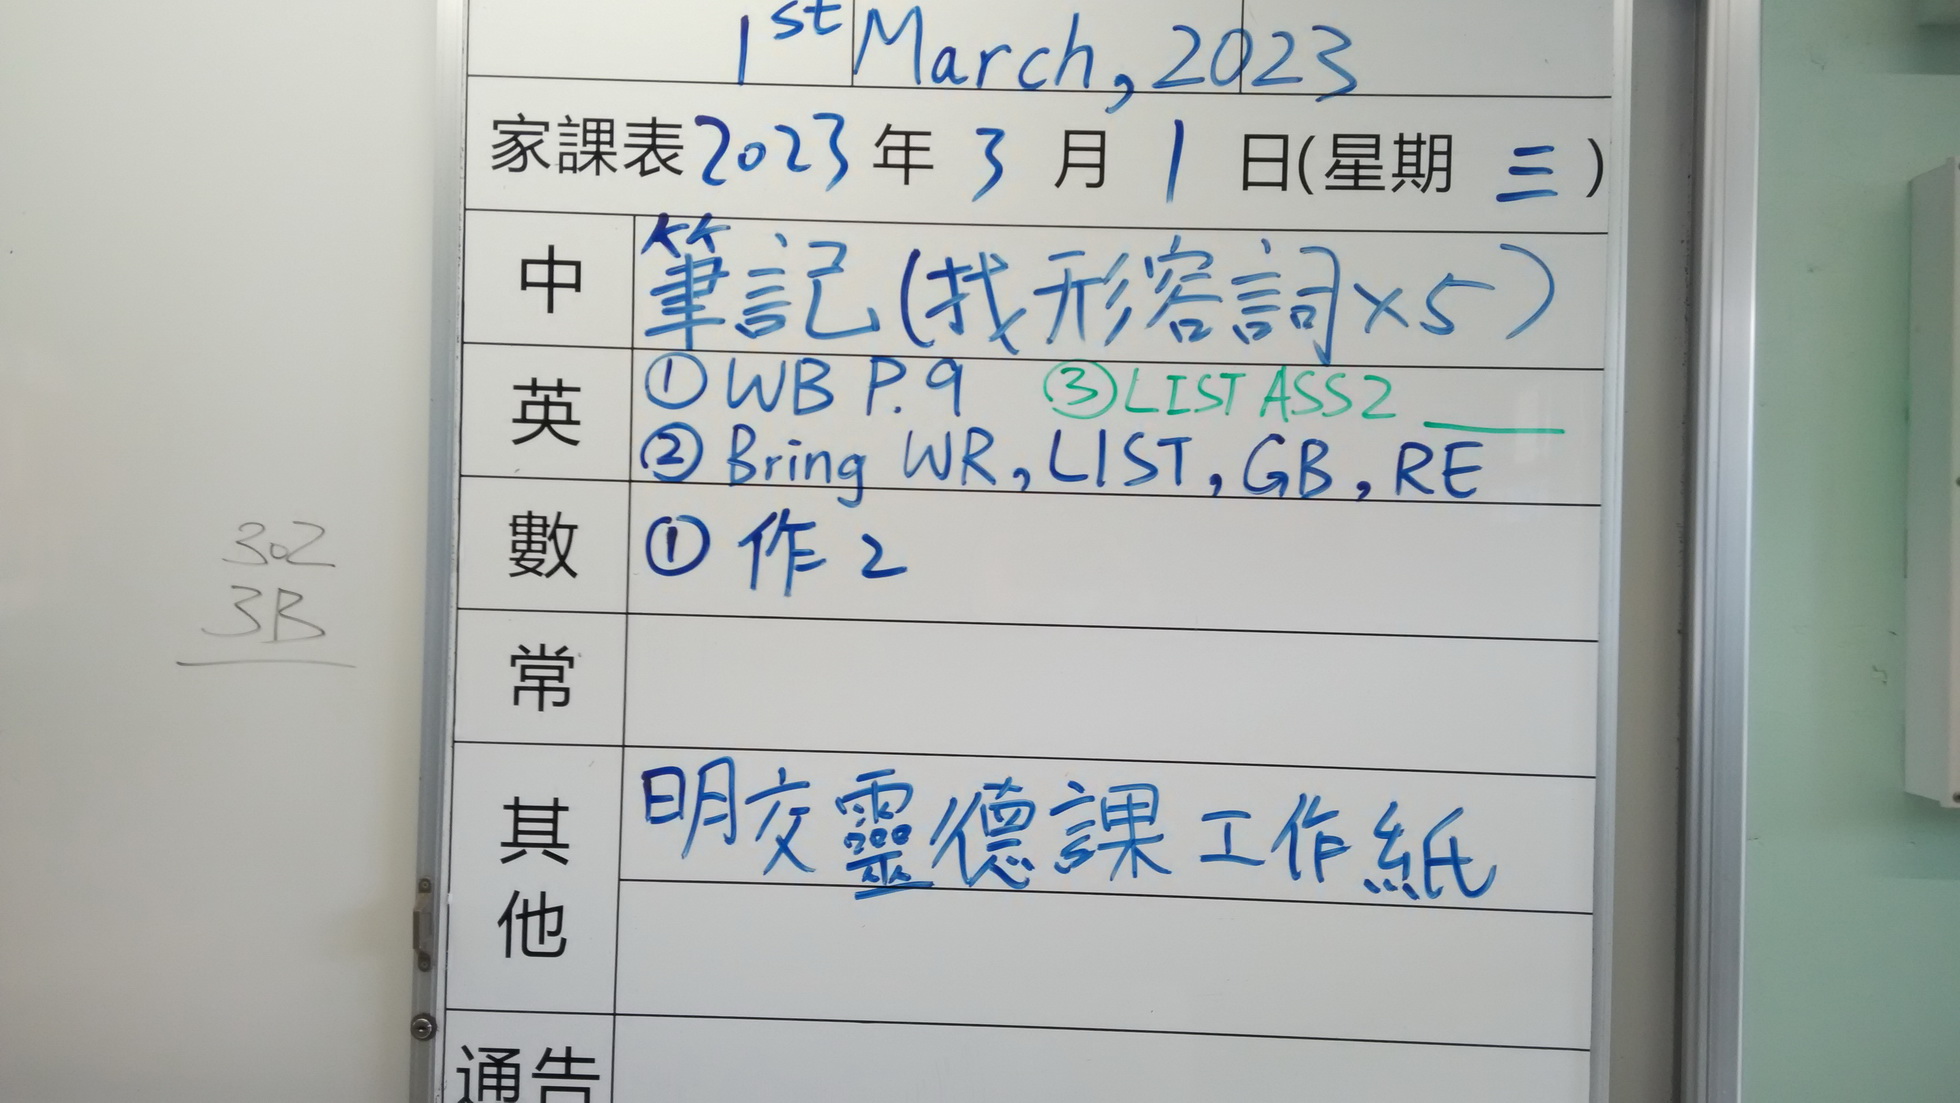 1st March, 2023
家課表 2023 年 3 月 1 日(星期 三)
中 筆記(找形容詞×5)
英 ① WB P.9 ③ LIST ASS2 ____
② Bring WR, LIST, GB, RE
數 ① 作 2
常
其他 明交靈德課工作紙
通告
302
3B